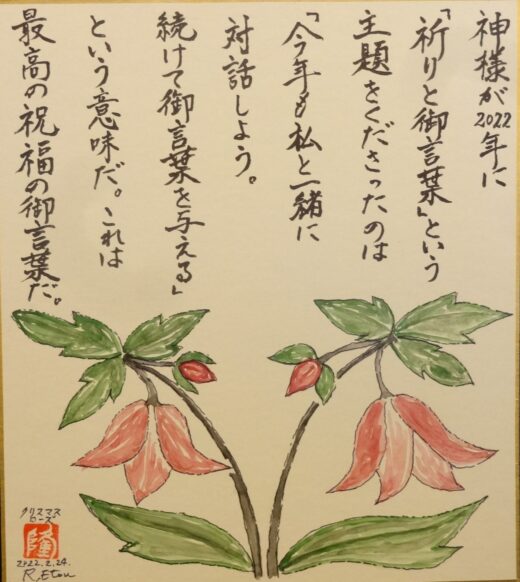 神様が2022年に
「祈りと御言葉」という
主題をくださったのは
「今年も私と一緒に
対話しよう。
続けて御言葉を与える」
という意味だ。これは
最高の祝福の御言葉だ。
クリスマス
ローズ
隆
2022.2.24.
R,Etou